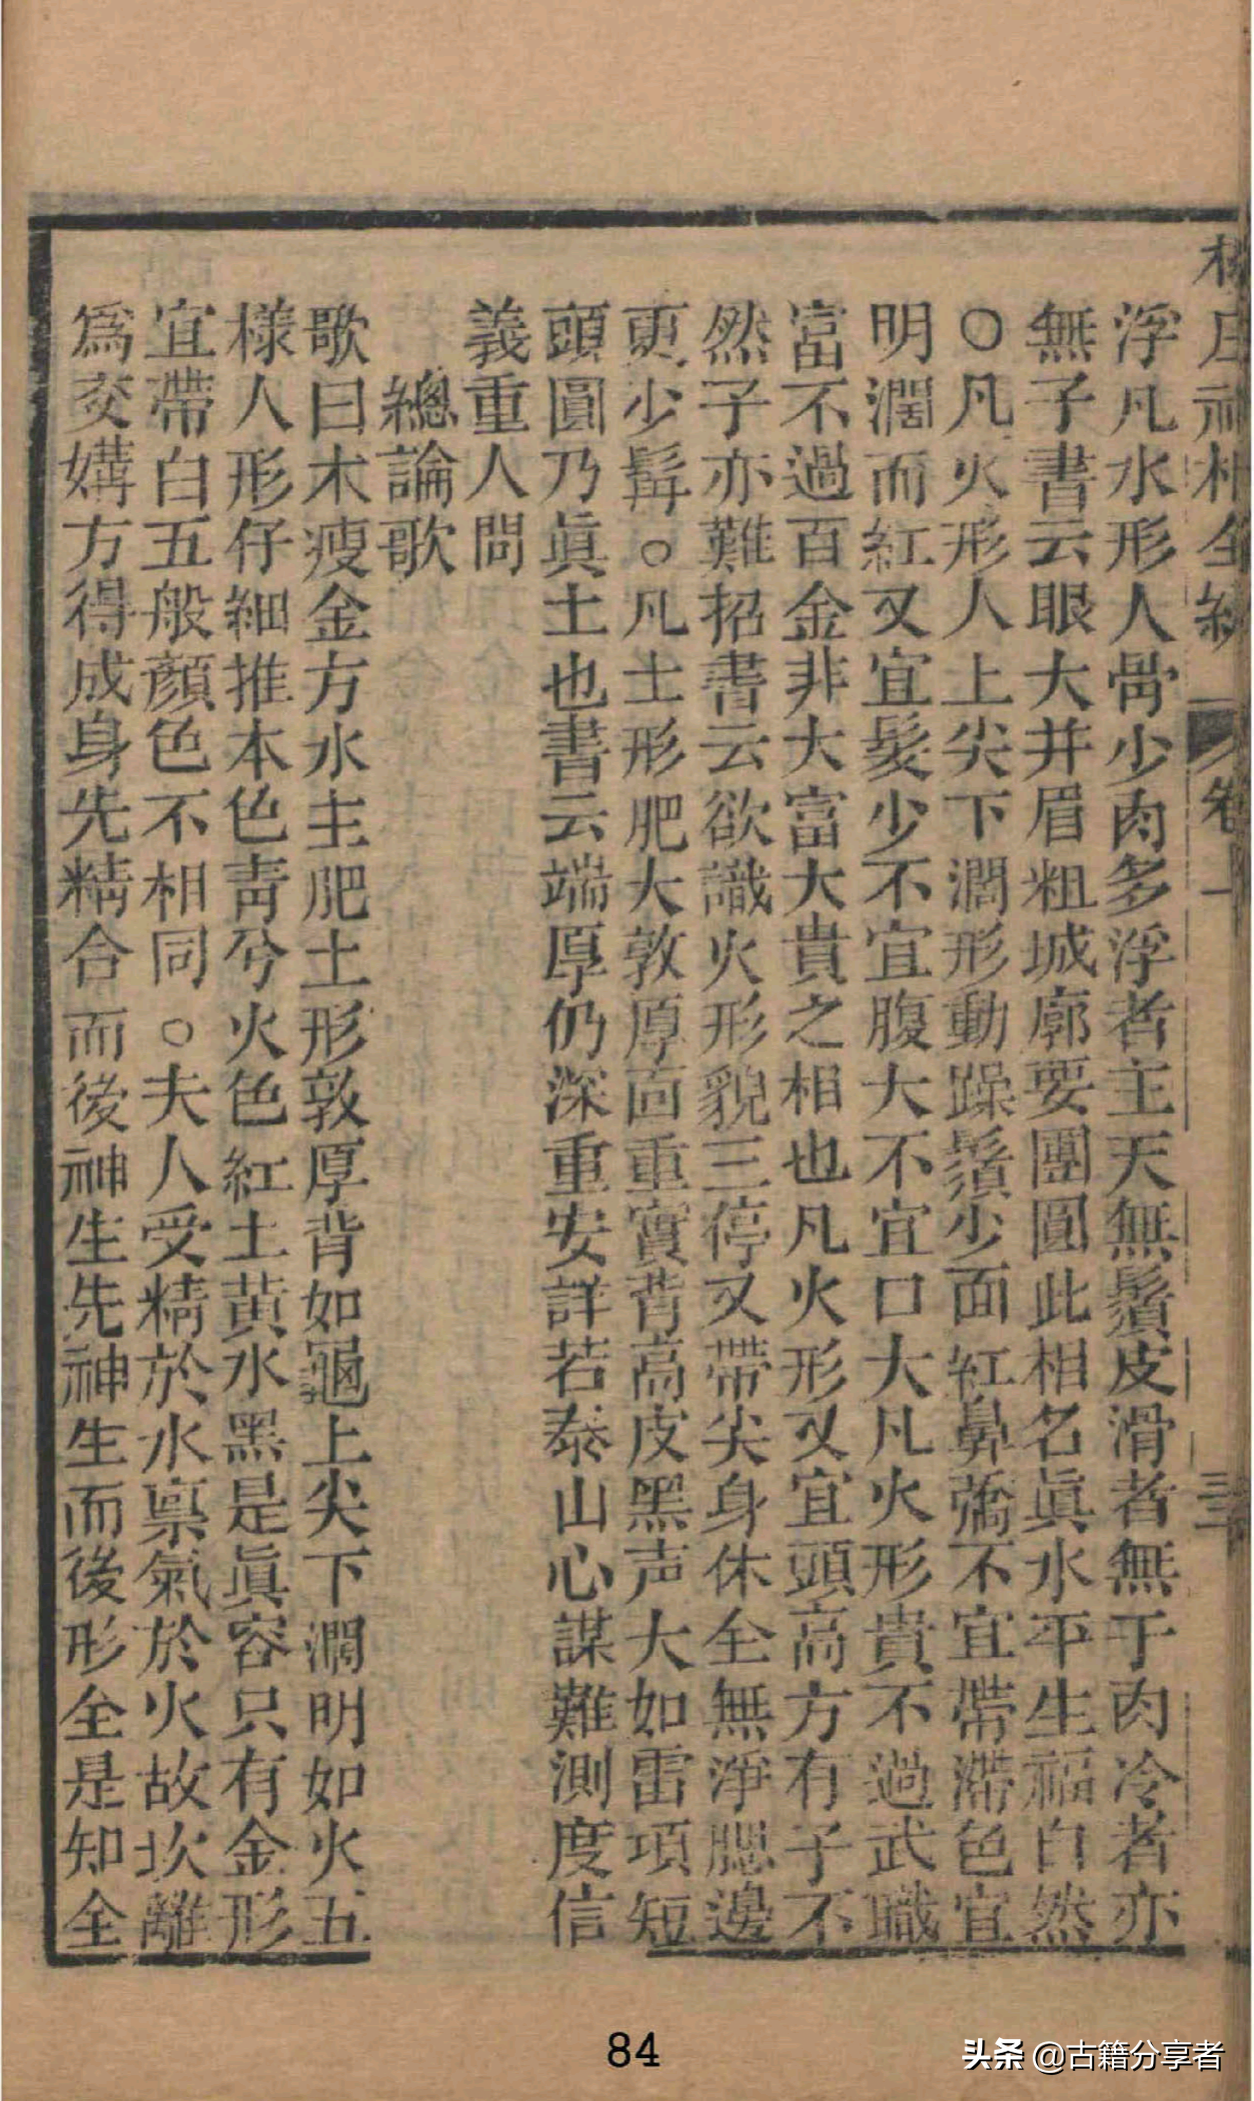 浮凡水形人骨少肉多浮者主天無鬚皮滑者無子肉冷者亦
無子書云眼大并眉粗城廓要團圓此相名眞水平生福自然
○凡火形人上尖下濶形動躁鬚少面紅鼻喬不宜帶滯色宜
明潤而紅又宜髮少不宜腹大不宜口大凡火形貴不過武職
富不過百金非大富大貴之相也凡火形又宜頭高方有子不
然子亦難招書云欲識火形貌三停又帶尖身体全無淨腮邊
更少髯○凡土形肥大敦厚面重實背高皮黑声大如雷項短
頭圓乃眞土也書云端厚仍深重安詳若泰山心謀難測度信
義重人問
總論歌
歌曰木瘦金方水主肥土形敦厚背如龜上尖下濶明如火五
樣人形仔細推本色靑兮火色紅土黃水黑是眞容只有金形
宜帶白五般顏色不相同○夫人受精於水禀氣於火故坎離
爲交媾方得成身先精合而後神生先神生而後形全是知全
卷一
三
84
头条 @古籍分享者